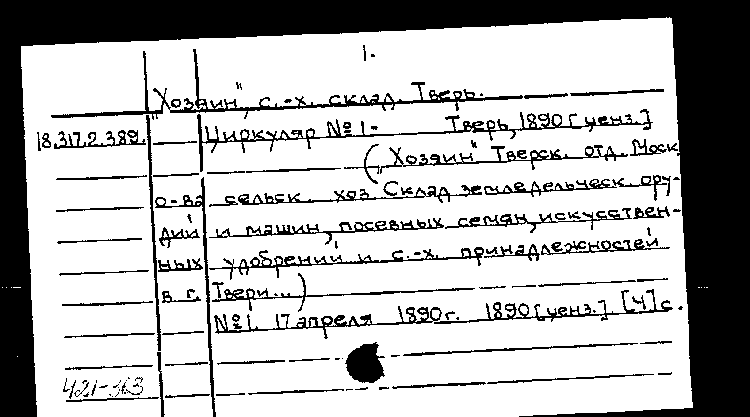 1.
„Хозяин", с.-х. склад. Тверь.
18.317.2.389. Циркуляр №1- Тверь, 1890 [ценз.]
(„Хозяин" Тверск. отд. Моск.
о-ва сельск. хоз. Склад земледельческ. ору-
дий и машин, посевных семян, искусствен-
ных удобрений и с.-х. принадлежностей
в г. Твери...)
№1. 17 апреля 1890г. 1890 [ценз.] [4] с.
421-363